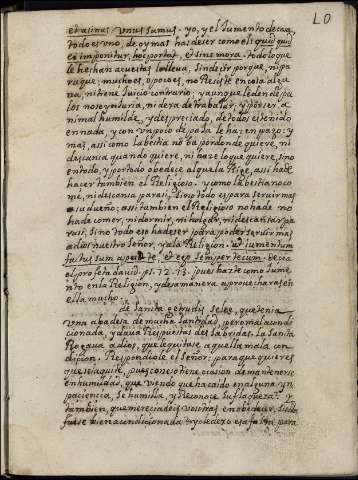 LO
et asinus vnus sumus. yo, y el Jumento de casa,
todo es vno, de oy mas has de ser como el: quidquid
ei imponitur, hoc portat, et sine mora. todo lo que
le hechan a cuestas lo lleva, sin desir por que, ni pa
ra que, mucho es, o poco es, no Resiste en cosa algu
na, ni tiene Juicio contrario, y aunque le den de pa
los no se enturia, ni dexa de trabajar, y por ser a
nimal humilde, y despreciado, de todos es tenido
en nada, y con vn poco de paja le hazen pago: y
mas, assi como la bestia no ba por donde quiere, ni
descansa quando quiere, ni haze lo que quiere, sino
en todo, y por todo obedece al que la Rige, assi ha de
hacer tambien el Religioso. y como la bestia no co
me, ni descansa para si, sino todo es para servir mas
a su dueño; assi tambien el Religioso no ha de
comer, ni dormir, ni holgar, ni descansar pa
ra si, sino todo eso ha de ser para poder servir mas
a dios nuestro señor, y a la Religion. ut iumentum
factus sum apud te, et ego semper tecum. Decia
el profeta david. ps. 72. 23. pues hazte como Jume
nto en la Religion, y de esa manera aprovecharas en
ella mucho.
de santa getrudis se lee, que tenia
vna abadesa de mucha santidad, pero mal acondi
cionada, y daua Respuestas desabridas. la santa
Rogaua a dios, que le quitase aquella mala con
dicion. Respondiole el señor: para que quieres
que se la quite, pues con eso tiene ocasion de mantenerse
en humildad, que viendo que ha caido en alguna yn
paciencia, se humilla, y Reconoce su flaqueza? y
tambien, que mereciades vosotras en obedecer, si ella
fuese bien acondicionada? yo le dexo esa falta para